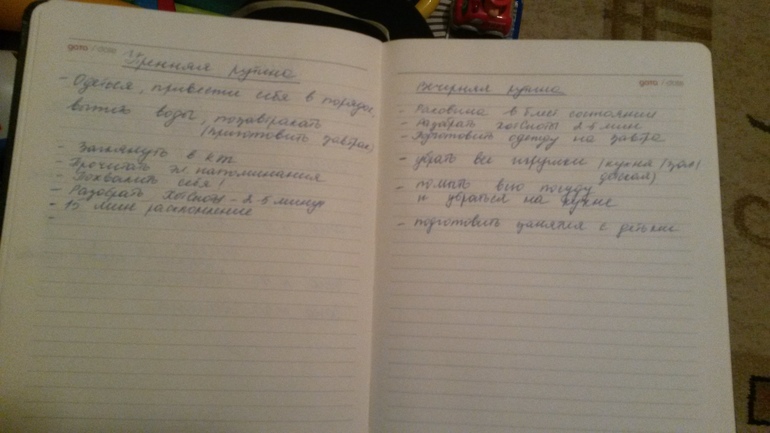 дата / date
Утренняя рутина
- Одеться, привести себя в порядок,
выпить воды, позавтракать
(приготовить завтрак)
- Заглянуть в к.т.
- Прочитать эл. напоминания
- Похвалить себя!
- Разобрать хотспоты - 2-5 минут
- 15 мин расхламление
-
дата / date
Вечерняя рутина
- Раковина в блест состоянии
- Разобрать хотспоты 2-5 мин
- Подготовить одежду на завтра
- убрать все игрушки (кухня/зал/
детская)
- помыть всю посуду
и убраться на кухне
- подготовить занятия с детьми